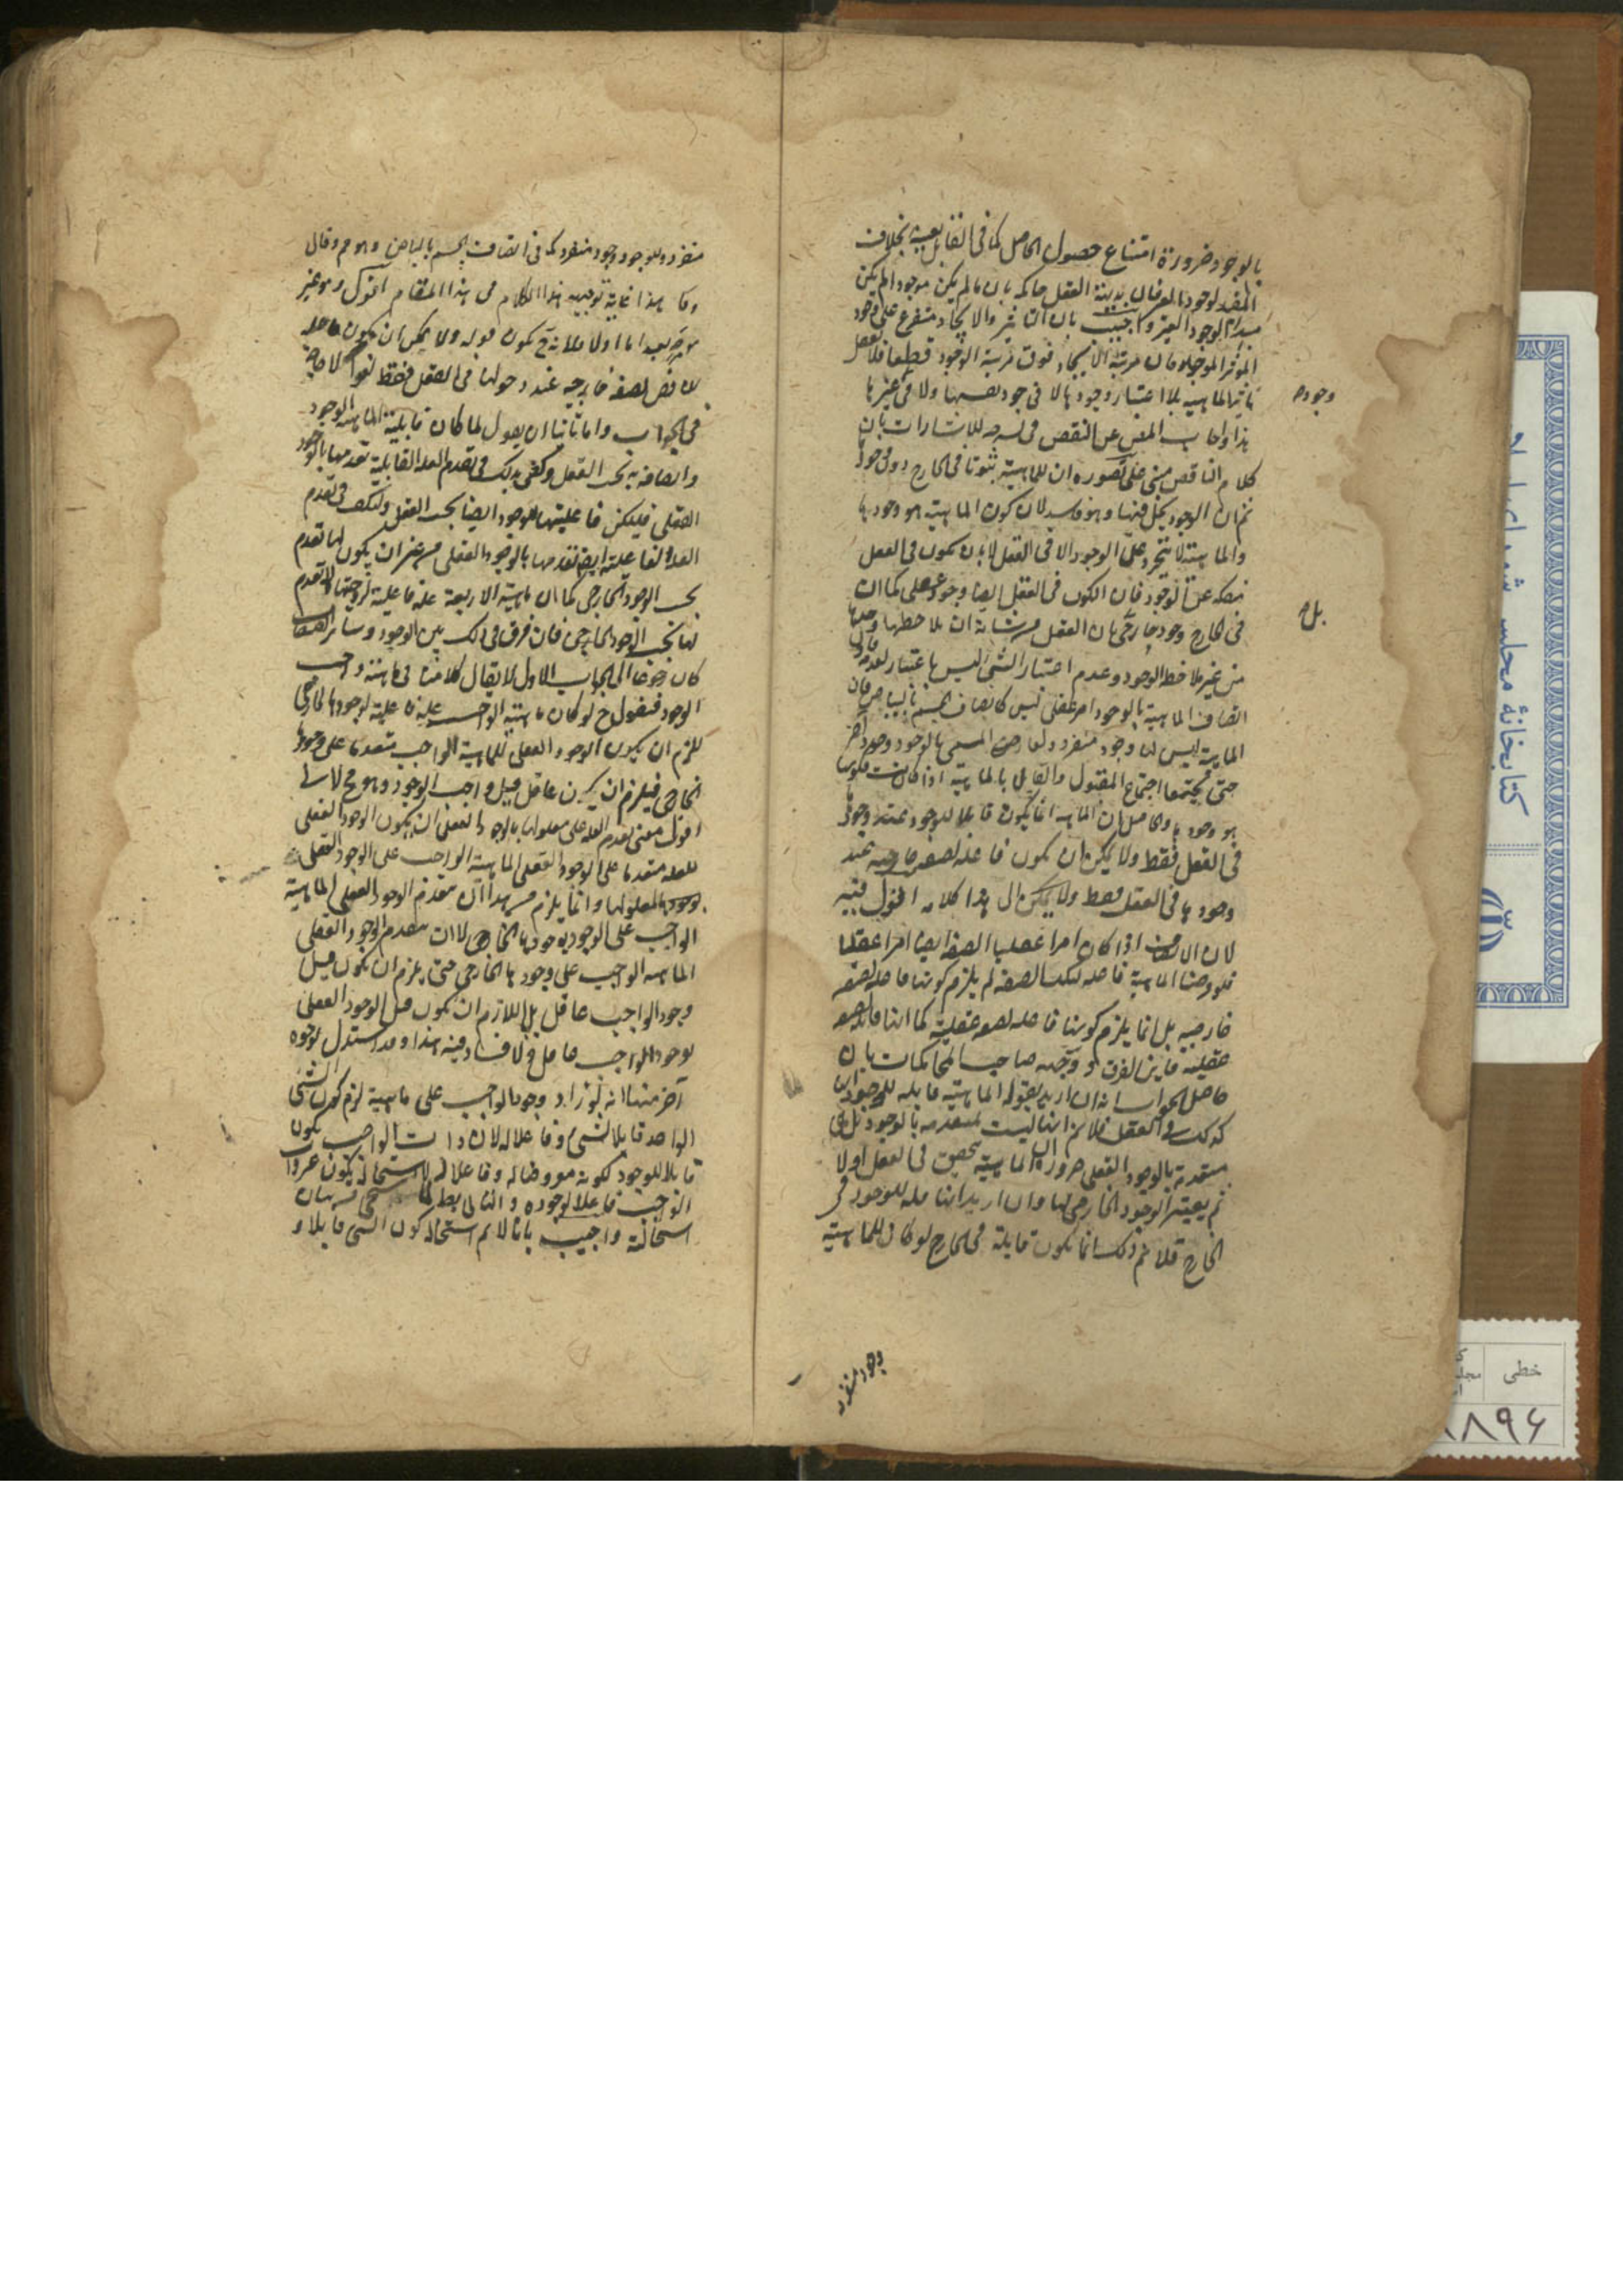 بالوجود ضرورة امتناع حصول الحاصل كما فى القابل بعينه بخلاف
المفيد لوجود الغير فان بديهة العقل حاكمة بان ما لم يكن موجودا لم يكن
مبدأ لوجود الغير واجيب بان التاثير والايجاد متفرع على وجود
المؤثر الموجد فان مرتبة الايجاد فوق مرتبة الوجود قطعا فلا يعقل
تاثير الماهية بلا اعتبار وجودها لا فى وجود نفسها ولا فى غيرها
هذا واجاب المص عن النقض فى شرحه للاشارات بان
كلام الناقض مبنى على تصوره ان للماهية ثبوتا فى الخارج دون وجودها
ثم ان الوجود يحل فيها وهو فاسد لان كون الماهية هو وجودها
والماهية لا تتجرد عن الوجود الا فى العقل لا بان يكون فى العقل
منفكة عن الوجود فان الكون فى العقل ايضا وجود عقلى كما ان
فى الخارج وجود خارجى بان العقل من شانه ان يلاحظها وحدها
من غير ملاحظة الوجود وعدم اعتبار الشئ ليس باعتبار لعدمه فاذن
اتصاف الماهية بالوجود امر عقلى ليس كاتصاف الجسم بالبياض فان
الماهية ليس لها وجود منفرد ولعارضها المسمى بالوجود وجود آخر
حتى يجتمعا اجتماع المقبول والقابل بل الماهية اذا كانت فكونها
هو وجودها والحاصل ان الماهية انما يكون قابلا للوجود عند وجودها
فى العقل فقط ولا يمكن ان يكون فاعلة لصفة خارجية عند
وجودها فى العقل فقط ولا يمكن الى هذا كلامه اقول فيه
لان الاتصاف اذا كان امرا عقليا الصفة ايضا امرا عقليا
فلو فرضنا الماهية فاعلة لتلك الصفة لم يلزم كونها فاعلة لصفة
خارجية بل انما يلزم كونها فاعلة لصفة عقلية كما انها قابلة لصفة
عقلية فاين الفرق ووجهه صاحب المحاكمات بان
حاصل الجواب انه ان اريد بقوله الماهية قابلة للوجود انها
كذلك فى العقل فلا نم انها ليست متقدمة بالوجود بل هى
متقدمة بالوجود العقلى ضرورة ان الماهية يتحقق فى العقل اولا
ثم يعتبر الوجود الخارجى لها وان اريد انها قابلة للوجود فى
الخارج فلا نم ذلك انما يكون قابلة فى الخارج لو كان للماهية
وجوده
بل
وجود منفرد
منفرد وللوجود وجود منفرد كما فى اتصاف الجسم بالبياض وهو م وقال
هذا غاية توجيه هذا الكلام فى هذا المقام اقول وهو غير
موجه بعد اما اولا فلانه ح يكون قوله ولا يمكن ان يكون فاعلة
لصفة خارجية عند وجودها فى العقل فقط لغوا لا حاجة
فى الجواب واما ثانيا ان يقول لما كان قابلية الماهية للوجود
واتصافه به بحسب العقل وكفى بذلك فى تقدم العلة القابلية تقدمها بالوجود
العقلى فليكن فاعليتها للوجود ايضا بحسب العقل وليكف فى تقدم
العلة الفاعلية ايض تقدمها بالوجود العقلى من غير ان يكون لها تقدم
بحسب الوجود الخارجى كما ان ماهية الاربعة علة فاعلية لزوجيتها ولا تقدم
لها بحسب الوجود الخارجى فان فرق فى ذلك بين الوجود وسائر الصفات
كان رجوعا الى الجواب الاول لا يقال كلامنا فى ماهية واجب
الوجود فنقول ح لو كان ماهية الواجب علة فاعلية لوجودها الخارجى
للزم ان يكون الوجود العقلى للماهية الواجب متقدما على وجودها
الخارجى فيلزم ان يكون عاقل قبل واجب الوجود وهو مح لانا
اقول معنى تقدم العلة على معلولها بالوجود العقلى ان يكون الوجود العقلى
للعلة متقدما على الوجود العقلى الماهية الواجب على الوجود العقلى
لوجودها لمعلولها وانما يلزم من هذا ان يتقدم الوجود العقلى الماهية
الواجب على الوجود بوجودها الخارجى لا ان يتقدم الوجود العقلى
الماهية الواجب على وجودها الخارجى حتى يلزم ان يكون قبل
وجود الواجب عاقل بل اللازم ان يكون قبل الوجود العقلى
لوجود الواجب عاقل ولا فساد فيه هذا وقد استدل بوجوه
آخر منها انه لو زاد وجود الواجب على ماهية لزم كون الشئ
الواحد قابلا لشئ وفاعلا له لان ذات الواجب يكون
قابلا للوجود لكونه معروضا له وفاعلا له لاستحالة يكون غير ذات
الواجب فاعلا لوجوده والتالى بط لما سيجئ من بيان
استحالته واجيب بانا لا نم استحالة كون الشئ قابلا و
كتابخانهٔ مجلس شورای
خطى
۸۹۶